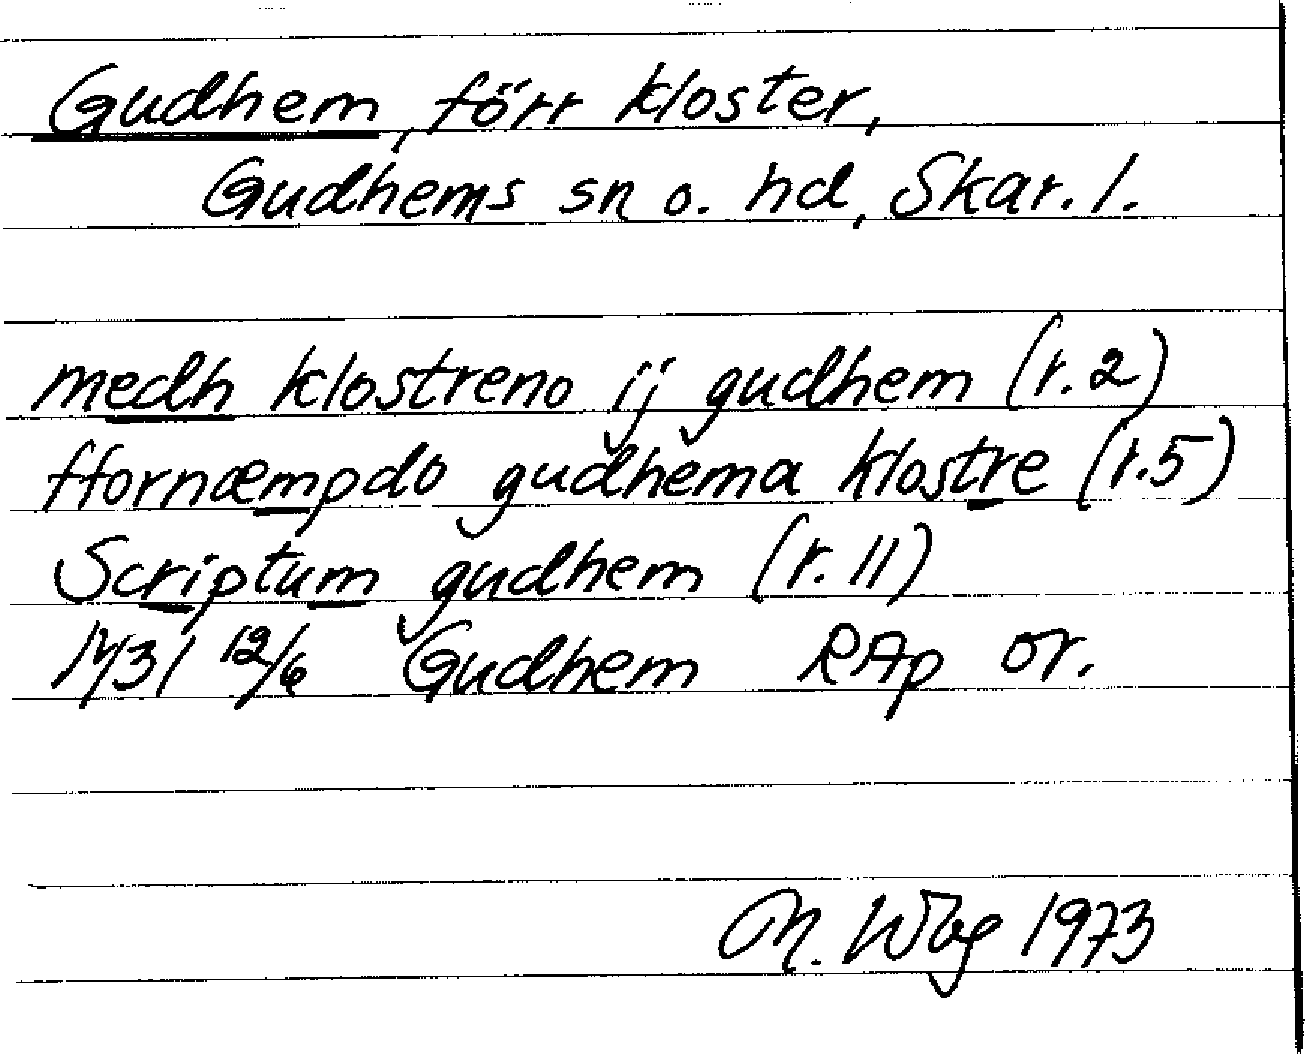 Gudhem, förr kloster,
Gudhems sn o. hd, Skar. l.
medh klostreno ij gudhem (r. 2)
ffornæmpdo gudhema klostre (r. 5)
Scriptum gudhem (r. 11)
1431 12/6 Gudhem RAp or.
M. Wbg 1973